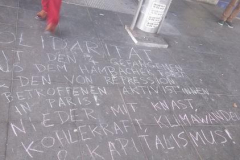 DARITÄT
DEN
DEN VON REPRESSION
BETROFFENEN AKTIVIST*INNEN
IN PARIS!
NIEDER MIT KNAST,
KOHLEKRAFT, KLIMAWANDEL
& KAPITALISMUS!